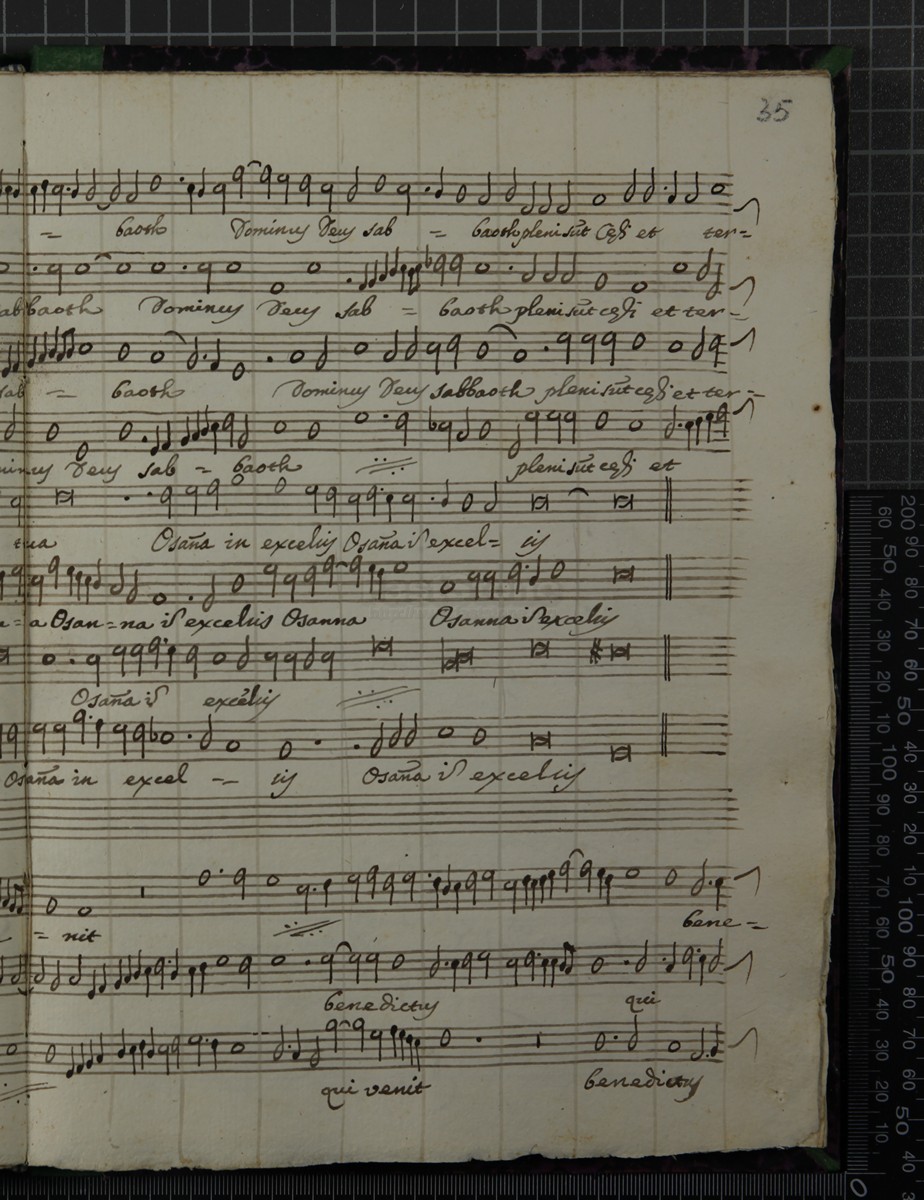 35
= baoth Dominus Deus sab = baoth pleni sūt cęli et ter=
sabbaoth Dominus Deus sab = baoth pleni sūt cęli et ter-
sab = baoth Dominus Deus sabbaoth pleni sūt cęli et ter-
minus Deus sab = baoth pleni sūt cęli et
tua Osaña in excelsis Osaña iñ excel= sis
a Osan=na iñ excelsis Osanna Osanna iñ excelsis
Osaña iñ excelsis
Osaña in excel -- sis Osaña iñ excelsis
= nit bene-=
benedictus qui
qui venit benedictus
200 90 80 70 60 50 40 30 20 10 100 90 80 70 60 50 40 30 20 10
60 50 40 30 20 10